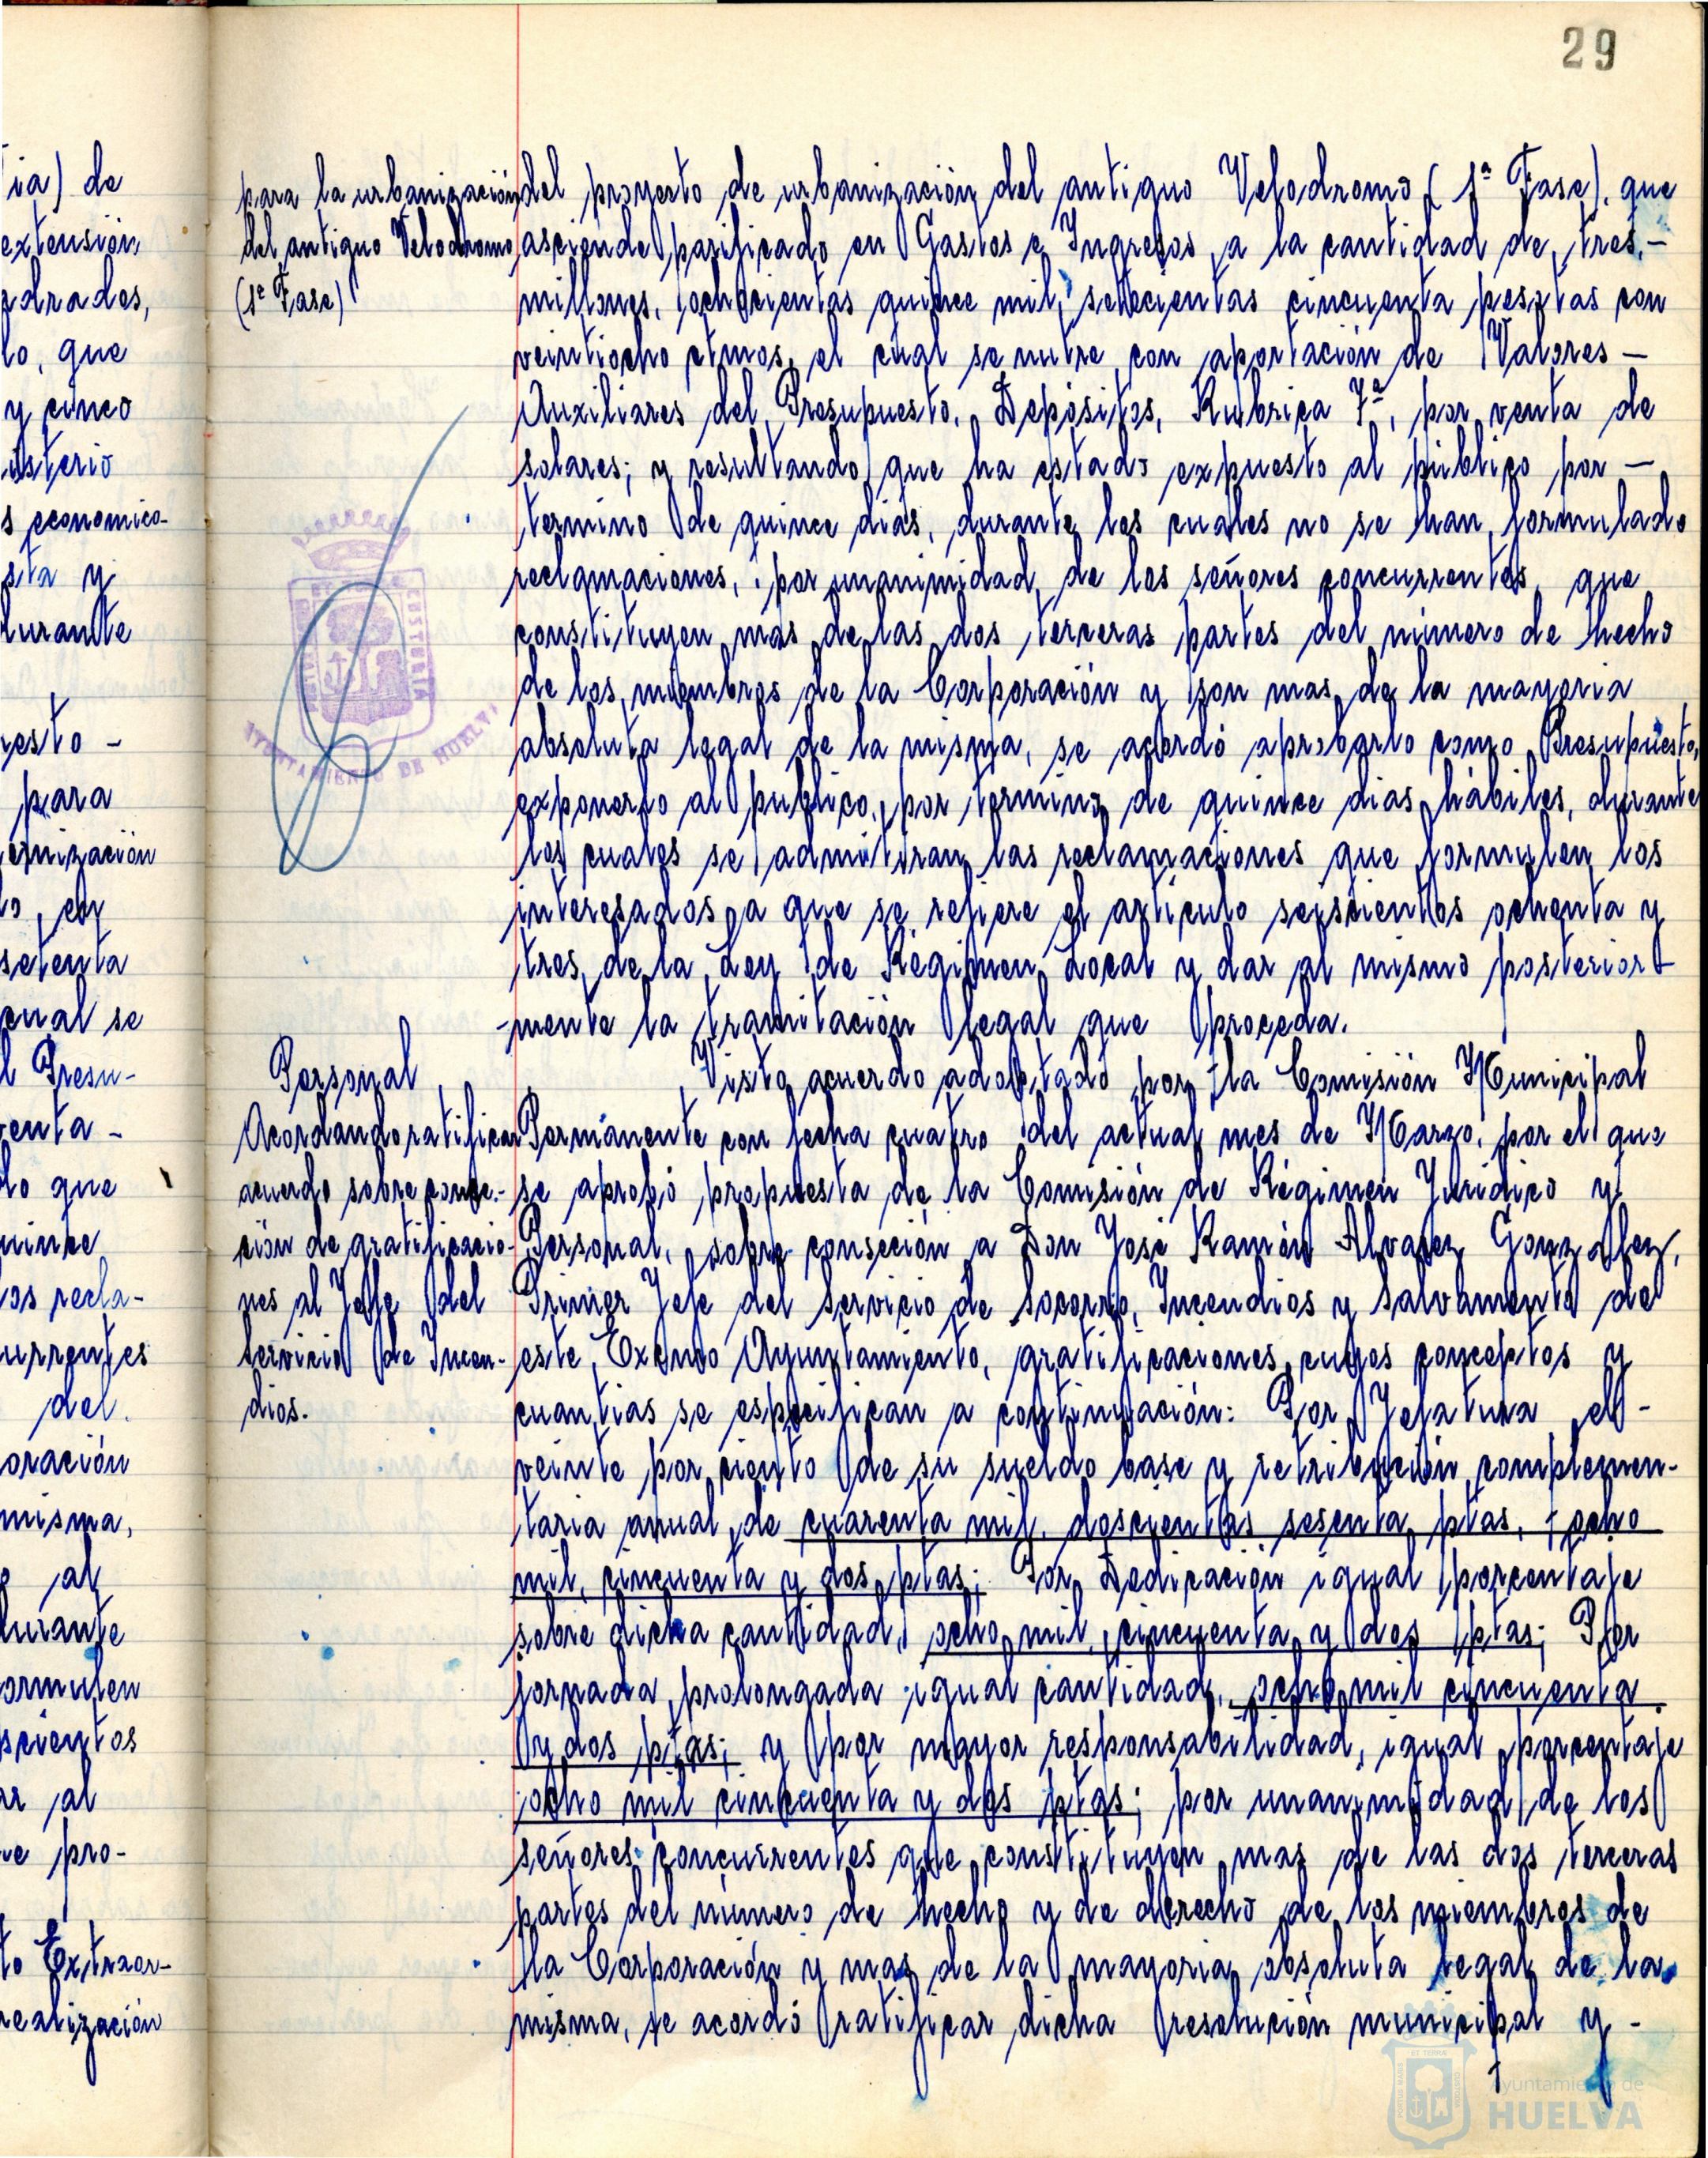 29
ia) de
extensión
adrados,
lo, que
y cinco
isterio
s economico-
sta y
durante
uesto -
para
ernización
lo, en
setenta
cual se
l Presu-
venta -
lo que
quince
los recla-
currentes
del
oración
misma,
al
durante
ormulen
scientos
ar al
ue pro-
to Extraor-
realización
para la urbanización
del antiguo Velodromo
(1ª Fase)
del proyecto de urbanización del antiguo Velodromo (1ª Fase), que
asciende parificado en Gastos e Ingresos a la cantidad de tres -
millones, ochocientas quince mil, setecientas cincuenta pesetas con
veintiocho ctmos, el cual se nutre con aportación de Valores -
Auxiliares del Presupuesto, Depósitos, Rubrica 7ª, por venta de
solares; y resultando que ha estado expuesto al público por -
termino de quince dias, durante los cuales no se han formulado
reclamaciones, por unanimidad de los señores concurrentes que
constituyen mas de las dos terceras partes del número de hecho
de los miembros de la Corporación y son mas de la mayoria
absoluta legal de la misma, se acordó aprobarlo como Presupuesto,
exponerlo al público, por termino de quince dias hábiles, durante
los cuales se admitiran las reclamaciones que formulen los
interesados a que se refiere el articulo seiscientos ochenta y
tres de la Ley de Régimen Local y dar al mismo posterior-
-mente la tramitación legal que proceda.
AYUNTAMIENTO DE HUELVA
Personal
Acordando ratificar
acuerdo sobre conce-
ción de gratificacio-
nes al Jefe del
Servicio de Incen-
dios.
Visto acuerdo adoptado por la Comisión Municipal
Permanente con fecha cuatro del actual mes de Marzo, por el que
se aprobó propuesta de la Comisión de Régimen Juridico y
Personal, sobre conseción a Don José Ramón Alvarez Gonzalez,
Primer Jefe del Servicio de Socorro, Incendios y Salvamento de
este Excmo Ayuntamiento, gratificaciones cuyos conceptos y
cuantias se especifican a continuación: Por Jefatura el -
veinte por ciento de su sueldo base y retribución complemen-
taria anual de cuarenta mil doscientas sesenta ptas, ocho
mil, cincuenta y dos ptas; Por Dedicación igual porcentaje
sobre dicha cantidad, ocho mil cincuenta y dos ptas; Por
jornada prolongada igual cantidad, ocho mil cincuenta
y dos ptas; y por mayor responsabilidad, igual porcentaje
ocho mil cincuenta y dos ptas; por unanimidad de los
señores concurrentes que constituyen mas de las dos terceras
partes del número de hecho y de derecho de los miembros de
la Corporación y mas de la mayoria absoluta legal de la
misma, se acordó ratificar dicha resolución municipal y -
Ayuntamiento de
HUELVA